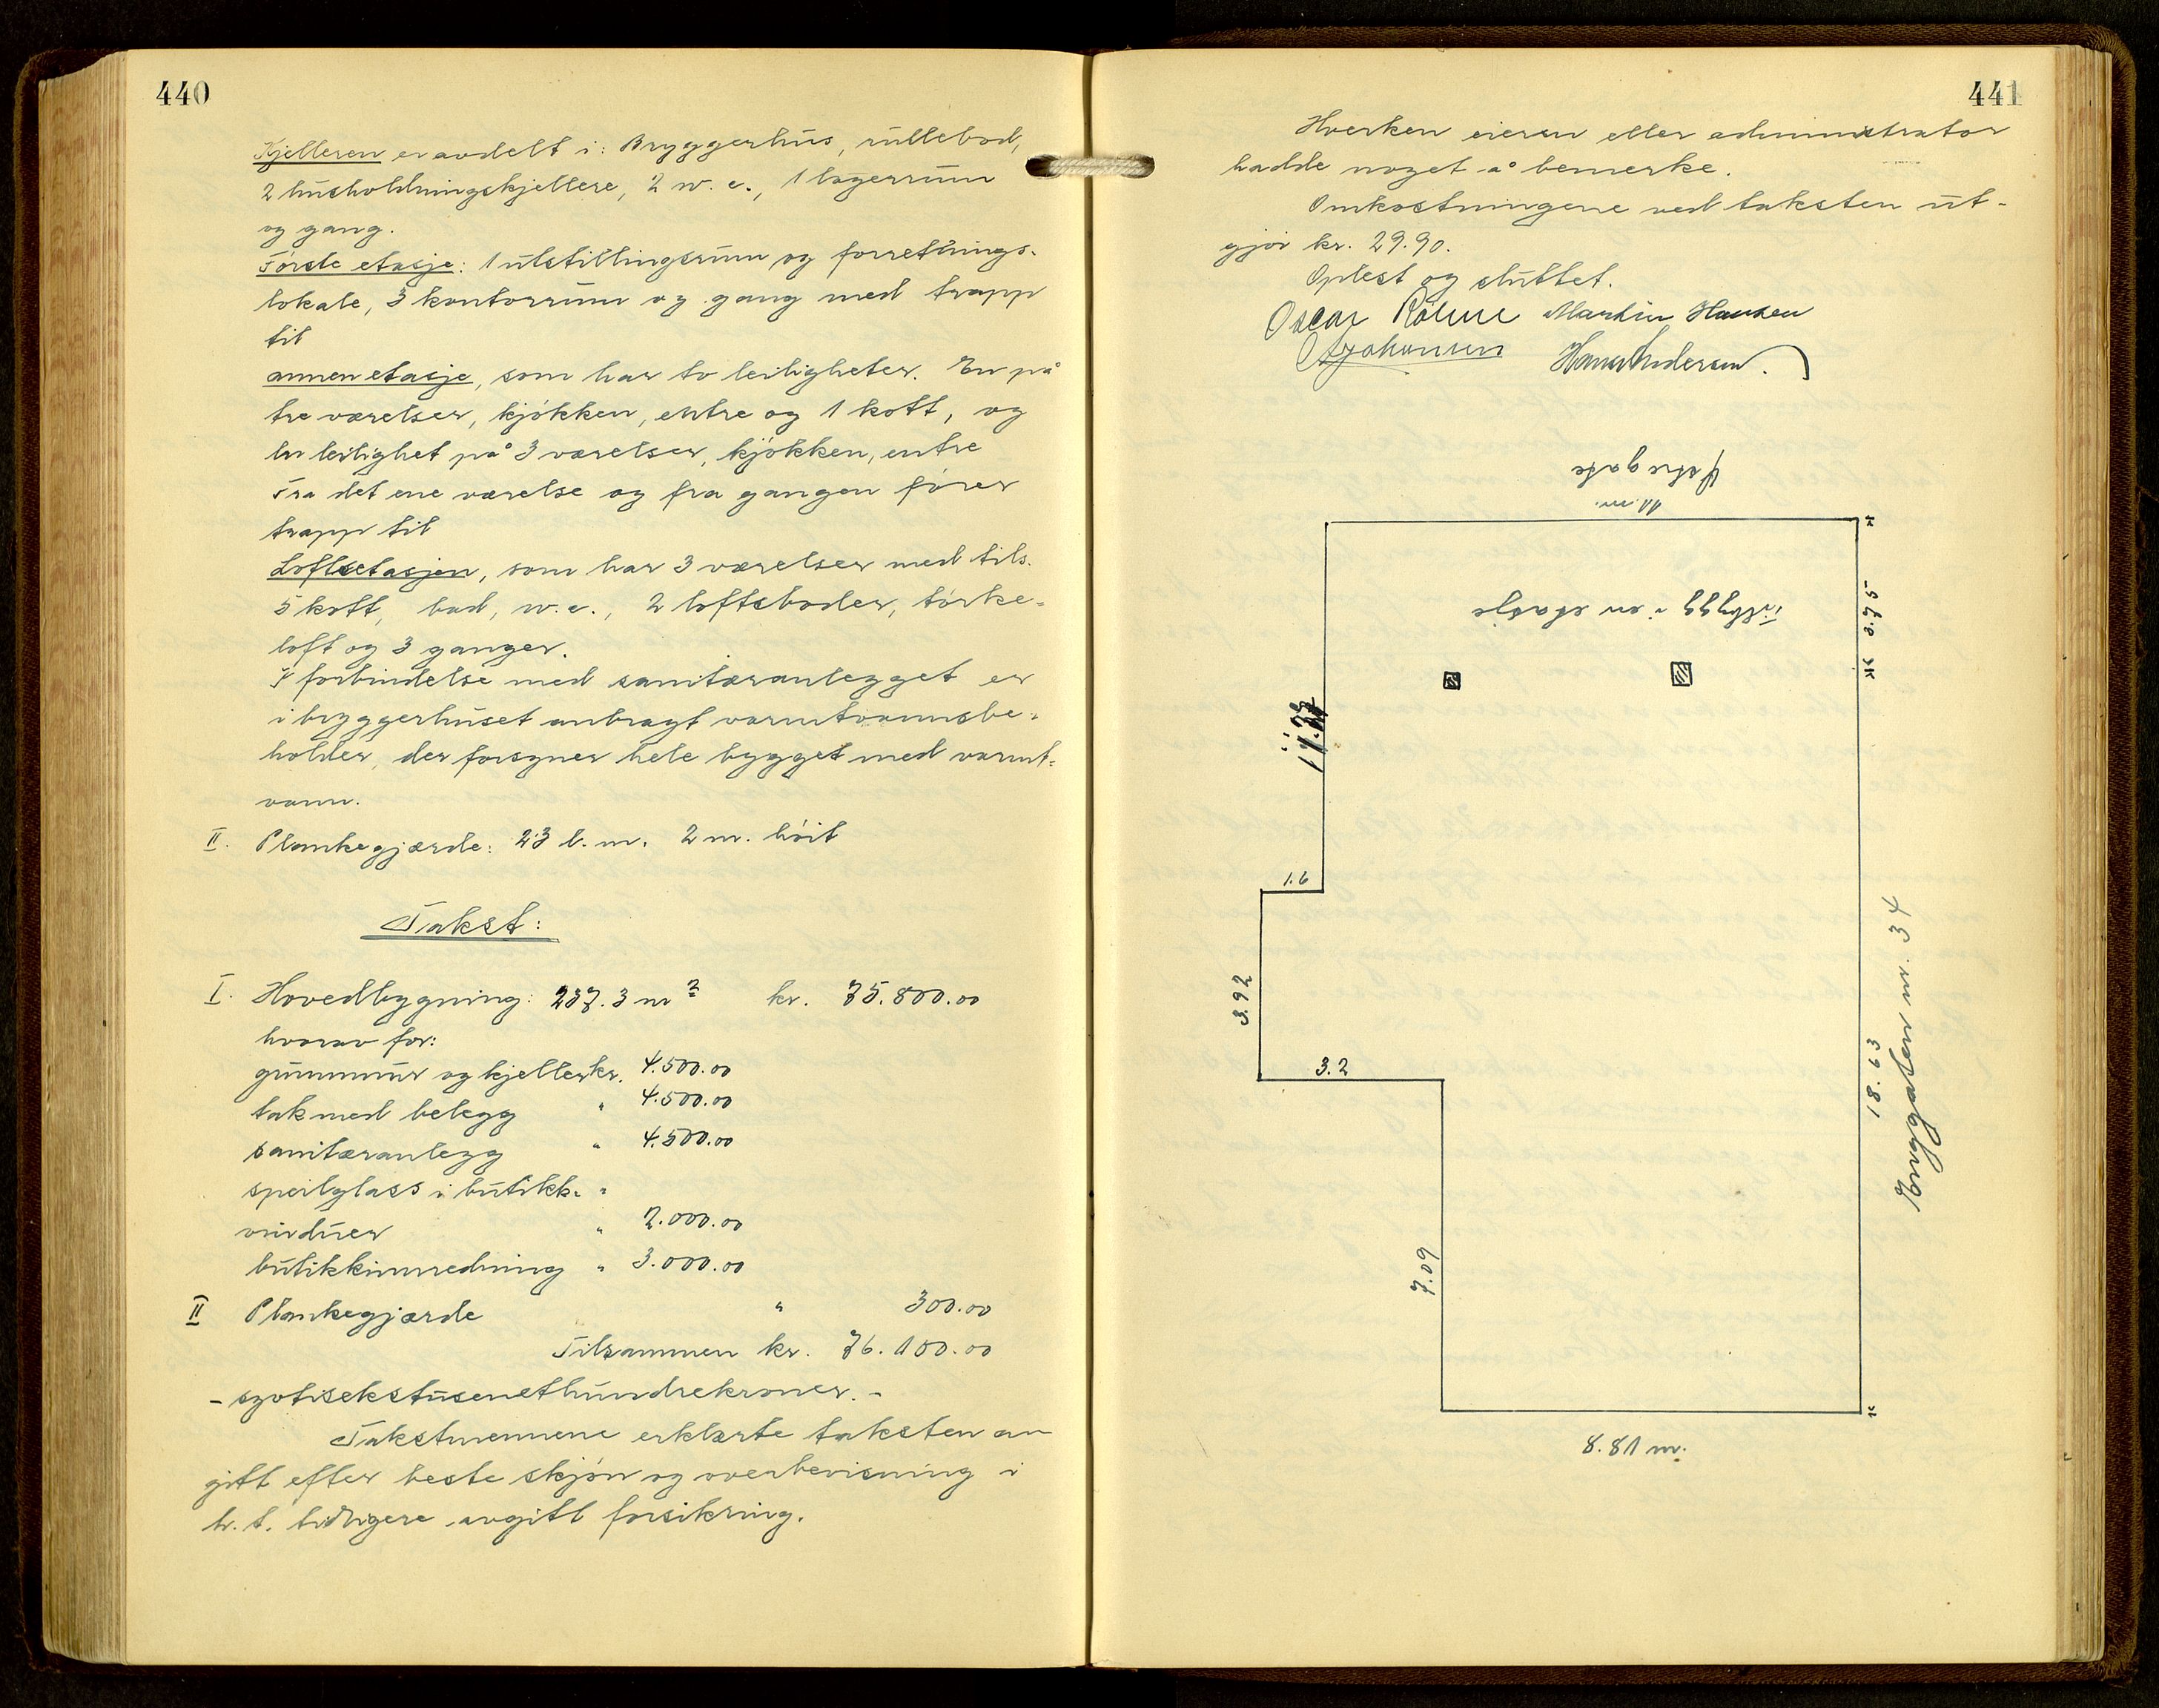 440
Kjelleren er avdelt i: Bryggerhus, rullebod,
2 husholdningskjellere, 2 w.c., 1 lagerrum
og gang.
Første etasje: 1 utstillingsrum og forretnings-
lokale, 3 kontorrum og gang med trapp
til
annen etasje, som har to leiligheter. En på
tre værelser, kjøkken, entre og 1 kott, og
en leilighet på 3 værelser, kjøkken, entre
Fra det ene værelse og fra gangen fører
trapp til
Loftsetasjen, som har 3 værelser med tils.
5 kott, bad, w.c., 2 loftsboder, tørke-
loft og 3 ganger.
I forbindelse med sanitæranlegget er
i bryggerhuset anbragt varmtvannsbe-
holder, der forsyner hele bygget med varmt-
vann.
II. Plankegjærde: 23 l.m. 2 m. høit
Takst:
I. Hovedbygning: 237.3 m² kr. 75.800.00
hvorav for:
grunnmur og kjeller kr. 4.500.00
tak med belegg " 4.500.00
sanitæranlegg " 4.500.00
speilglass i butikk- "
vinduer " 2.000.00
butikkinnredning " 3.000.00
II Plankegjærde " 300.00
Tilsammen kr. 76.100.00
- syttisekstusenethundrekroner. -
Takstmennene erklærte taksten av
gitt efter beste skjøn og overbevisning i
h.t. tidligere avgitt forsikring.
441
Hverken eieren eller administrator
hadde noget å bemerke.
Omkostningene ved taksten ut-
gjør kr. 29.90.
Oplest og sluttet.
Oscar Martin Hansen
Johansen Hans Andersen.
Østregate
11. m.
tilbygg i en etasje
3.75
1.6
3.92
3.2
18.63
Bryggaten nr. 34
7.09
8.81 m.